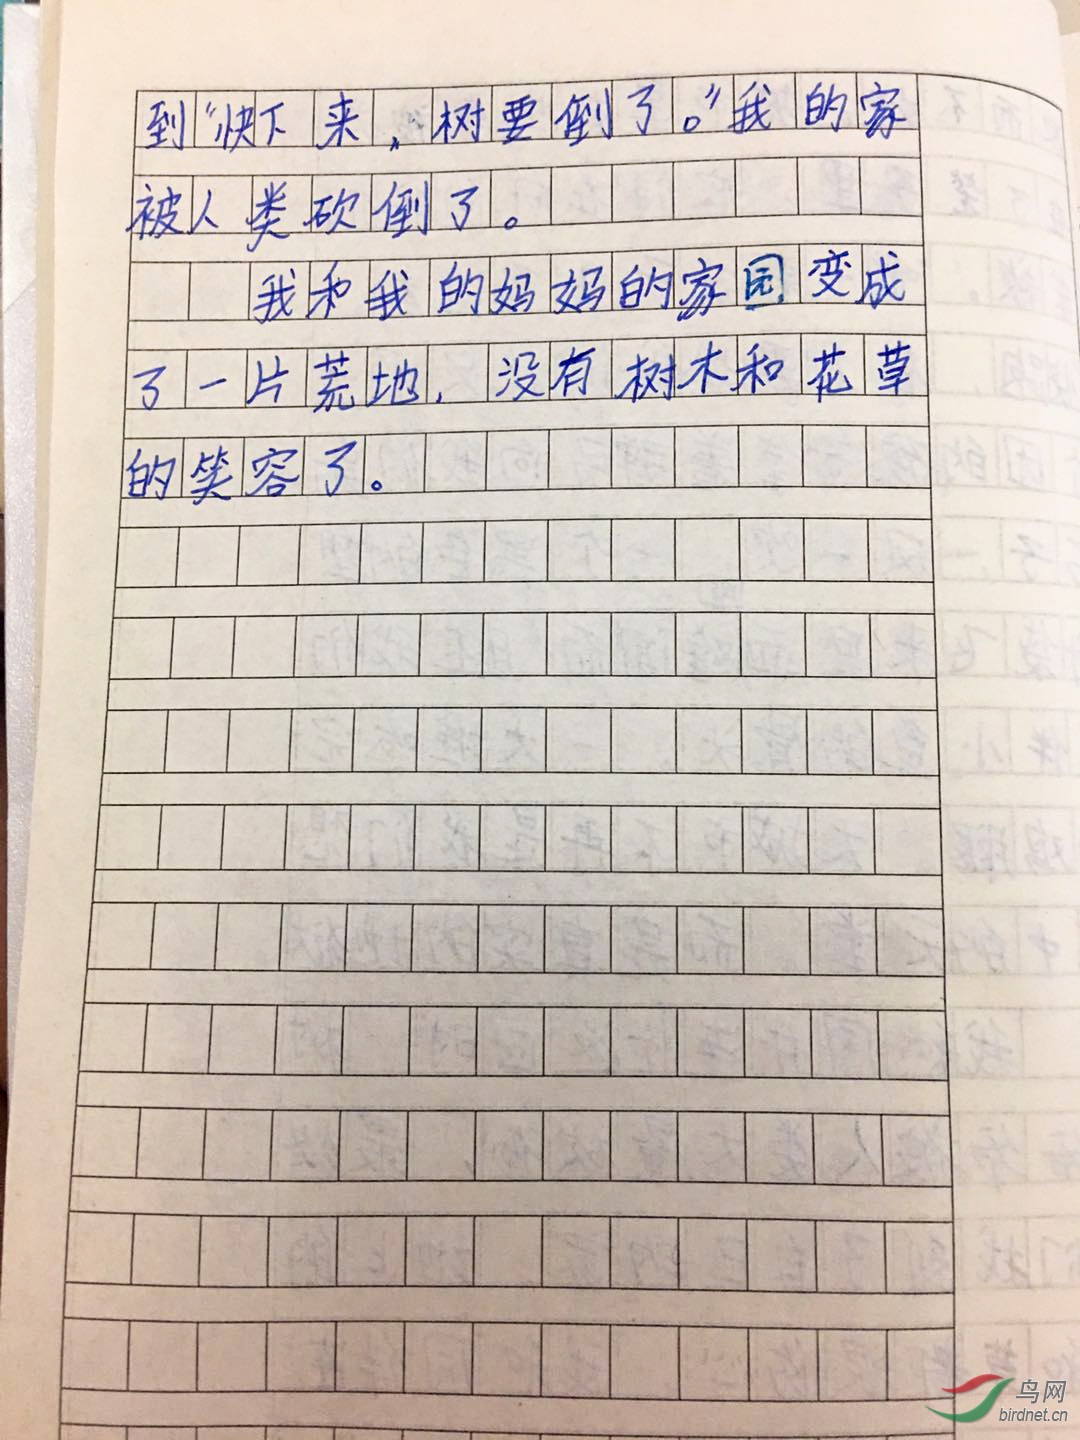 到“快下来，树要倒了。”我的家
被人类砍倒了。
我和我的妈妈的家园变成
了一片荒地，没有树木和花草
的笑容了。
鸟网
birdnet.cn